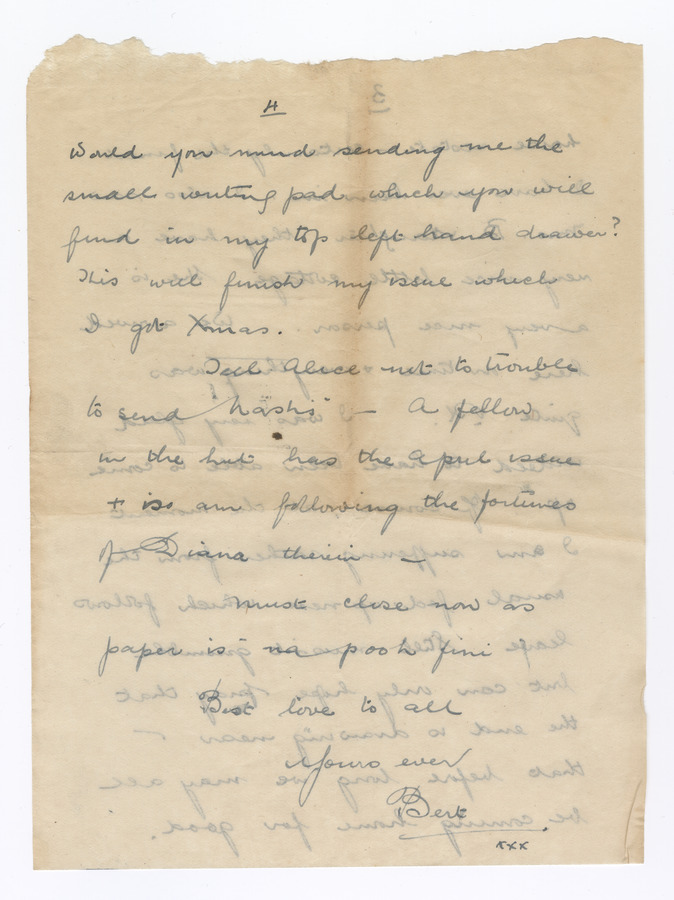 4
Would you mind sending me the
small writing pad which you will
find in my top left hand drawer?
This will finish my issue which
I got Xmas.
Tell Alice not to trouble
to send "Nash's" — A fellow
in the hut has the April issue
+ so am following the fortunes
of Diana therein —
Must close now as
paper is "na pooh" fini
Best love to all
Yours ever
Bert
xxx